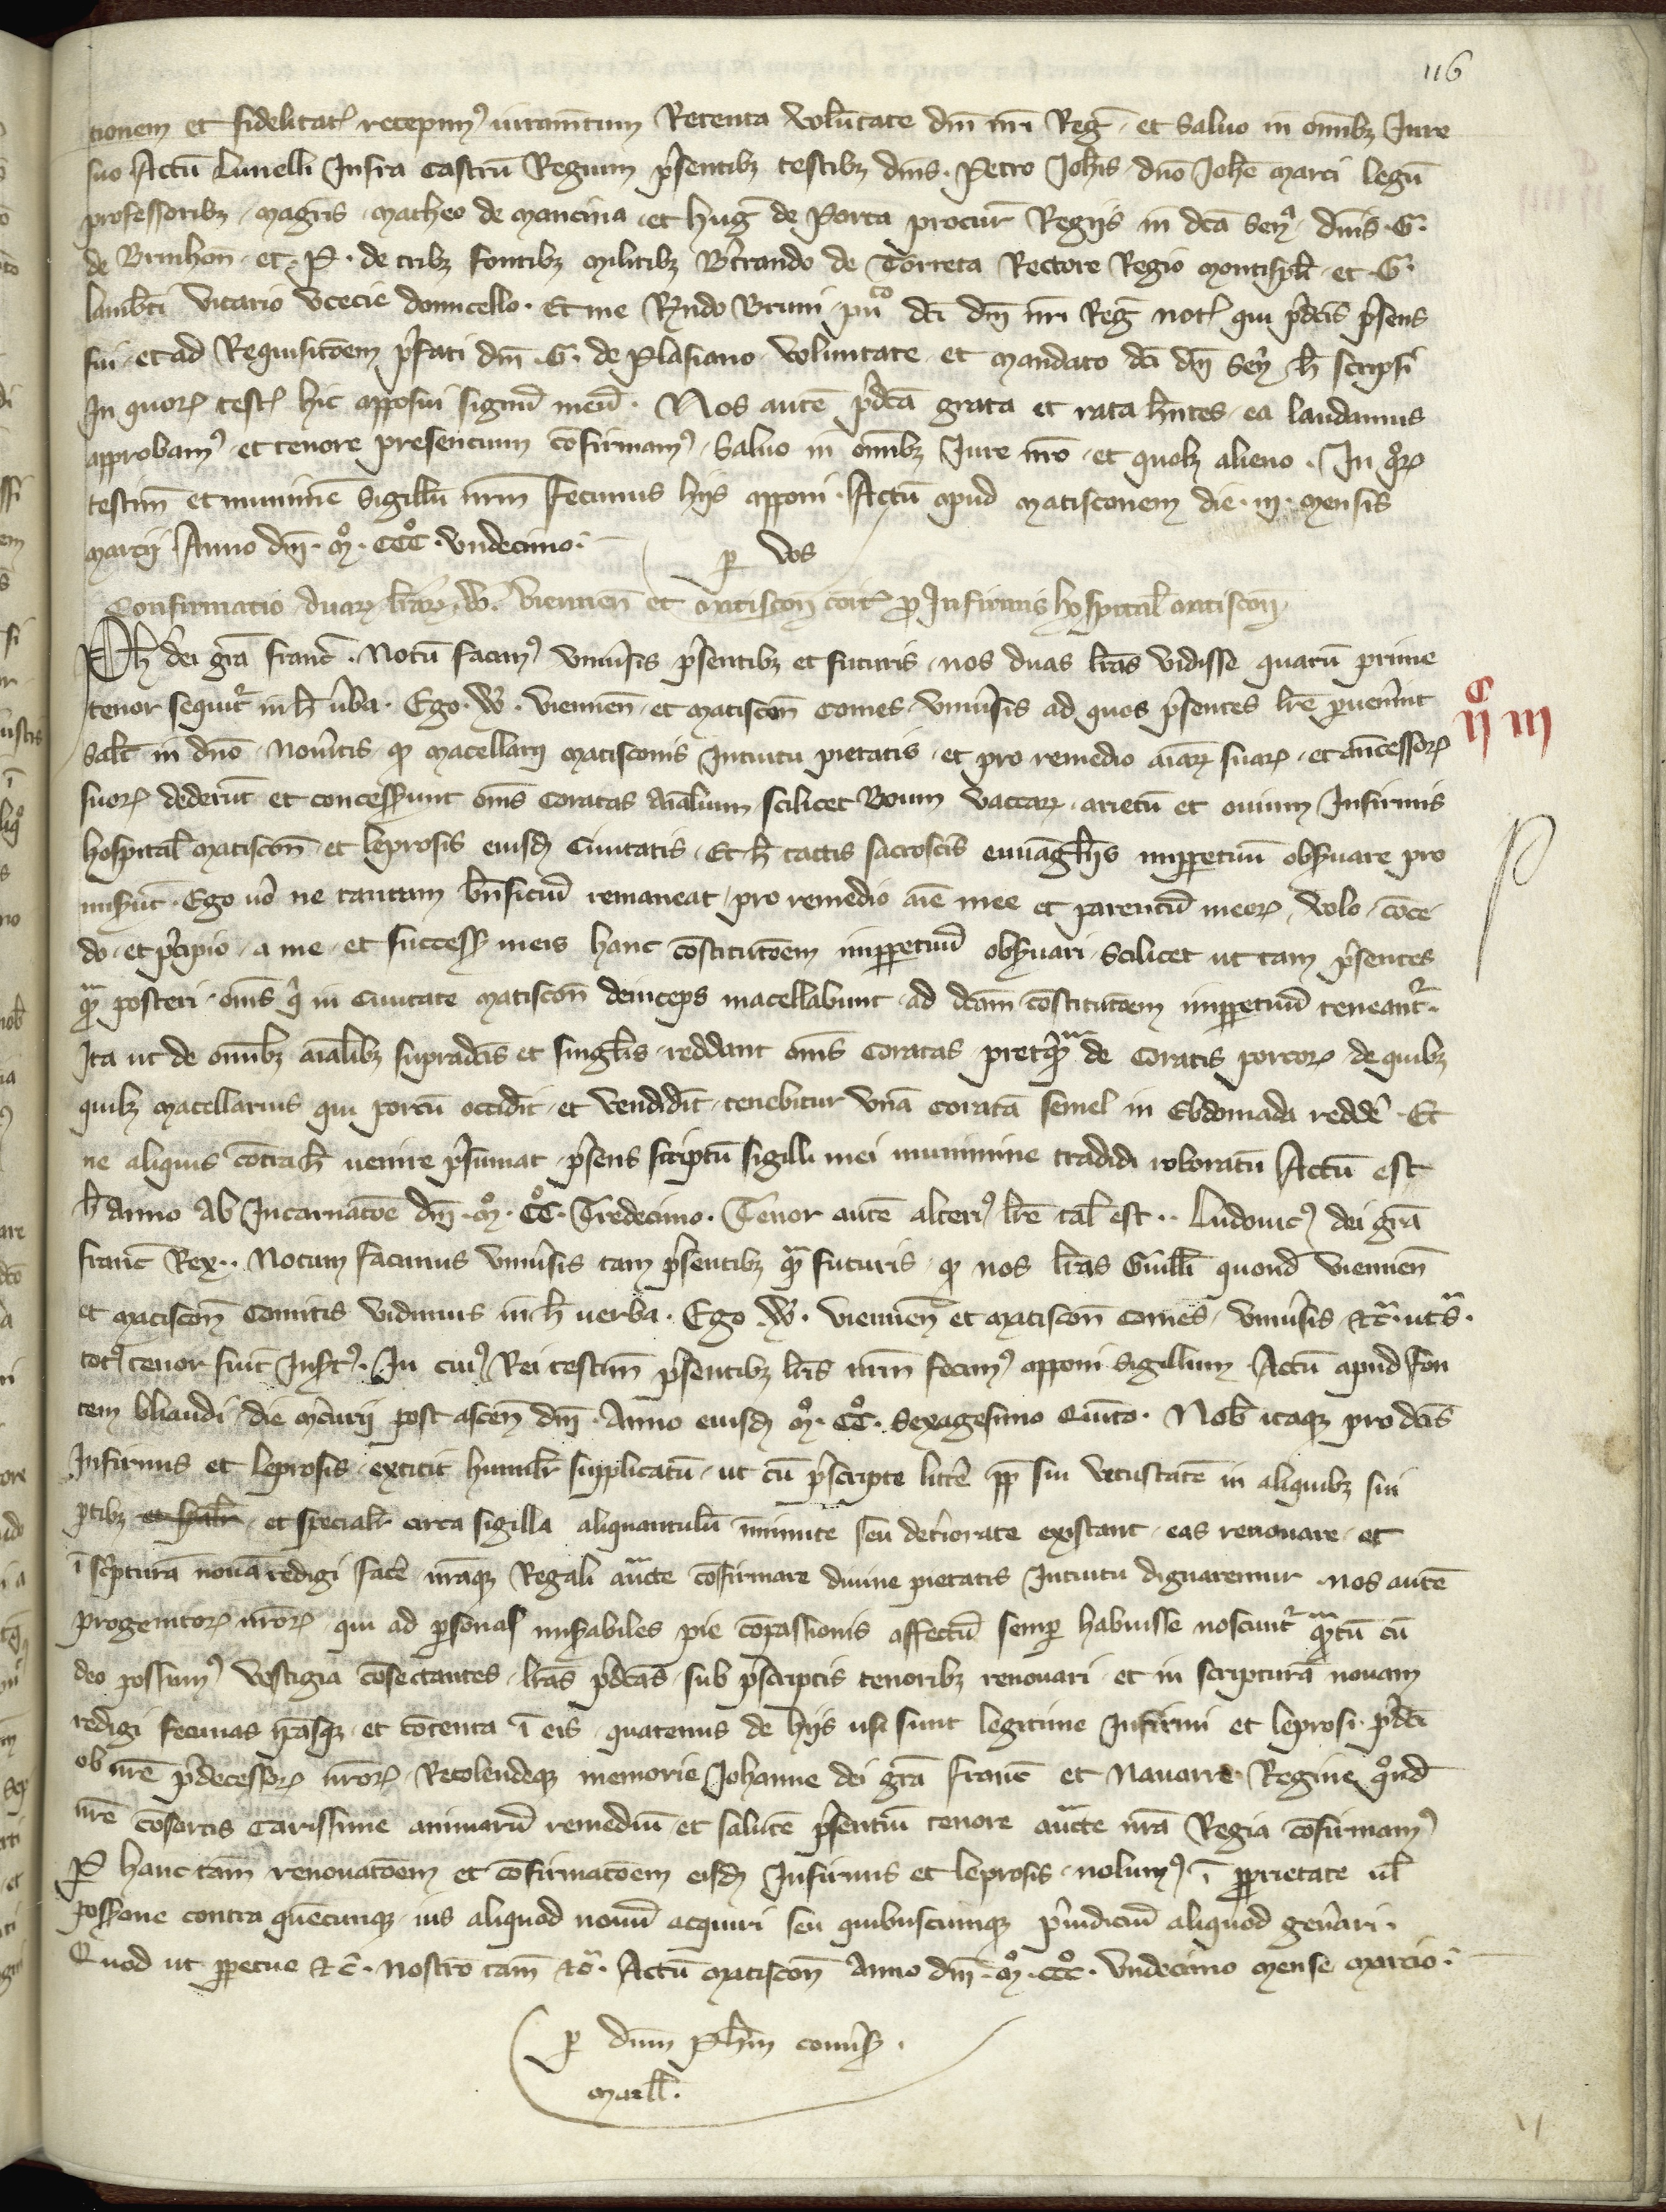 116
tionem et fidelitat recepim⁹ iuramtum Retenta volūtate dn̄i nr̄i Reḡ et Saluo in om̄ibȝ Iure
suo Actū Lunelli Infra Castrū Regium p̄sentibȝ testibȝ dn̄is. Petro Joh̄is. dn̄o Joh̄e marci legū
professoribȝ. magr̄is. matheo de mancina et huḡ de Porta procur̄ Regijs in dc̄a Sen̄. dn̄is. G.
de Bruihon̄ et P. de tribȝ fontibȝ militibȝ B̄trando de Torreta Rectore Regio montispl̄i et G.
lamb̄ti vicario vcecie domicello. Et me R̄ndo Bruni pu͞co dc̄i dn̄i nr̄i Reḡ not qui p̄dc̄is p̄sens
fui et ad Requisitōem p̄fati dn̄i G. de Plasiano voluntate et mandato dc̄i dn̄i Sen̄ h̄ scripsi
In quoꝝ test hic apposui signū meū. Nos autē p̄dc̄a grata et rata hn̄tes ea laudamus
approbam⁹ et tenore presencium cōfirmam⁹. Saluo in om̄ibȝ Iure nr̄o et quolȝ alieno. In qoꝝ
testim̄ et munimē Sigillū nr̄m fecimus hijs apponi. Actū apud matisconem die. iij. mensis
marcij Anno dn̄i. mº. CCCº. vndecimo.
ꝑ vos
Confirmatio duaꝝ lr̄aꝝ. W. viennen̄ et matiscon̄ coit ꝓ Infirmis hospital̄ matiscon̄
Ph̄ dei grā franc̄. Notū facim⁹ vniūsis p̄sentibȝ et futuris nos duas lr̄as vidisse quarū prime
tenor sequit᷑ in h̄ ūba. Ego. W. viennen̄ et matiscon̄ comes vniūsis ad quos p̄sentes lr̄e ꝑuen̄int
C
ij III
Salt̄ in dn̄o. Nouītis ꝙ macellarij matisconis Intuitu pietatis et pro remedio aīaꝝ suaꝝ et an̄cessoꝝ
suoꝝ dederūt et concesserunt om̄s Coratas aīalium scilicet Boum vaccaꝝ arietū et ouium Infirmis
hospital̄ matiscon̄ et leprosis eiusd Ciuitatis. Et h̄ tactis sacrosc̄is euuāgl̄ijs inꝑpetuū obseruare pro
miserūt. Ego ūo ne tantum bn̄ficiū remaneat pro remedio aīe mee et parentū meoꝝ volo conce
do et p̄cipio a me et success meis hanc cōstitutōem inꝑpetuū obseruari Scilicet ut tam p̄sentes
qᵃm posteri om̄s q̄ in Ciuitate matiscon̄ deinceps macellabunt ad dc̄am cōstitutōem inꝑpetuū teneant᷑.
Ita ut de om̄ibȝ aīalibȝ supradc̄is et singl̄is reddant om̄s Coratas pret̄qᵃm de Coratis porcoꝝ de quibȝ
quilȝ macellarius qui porcū occidit et vendidit tenebitur vnā coratā semel in Ebdomada redd̄e. Et
ne aliquis cōtra h̄ uenire p̄sumat p̄sens scriptū sigilli mei munimine tradidi roboratū Actū est
h̄ Anno ab Incarnatōe dn̄i. mº. CCº. Tredecimo. Tenor autē alteri⁹ lr̄e tal̄ est.. Ludouic⁹ dei grā
franc̄ Rex.. Notum facimus vniūsis tam p̄sentibȝ qᵃm futuris ꝙ nos lr̄as Guill̄i quond̄ viennen̄
et matiscon̄ Comitis vidimus in h̄ uerba. Ego. W. viennen̄ et matiscon̄ comes vniūsis ⁊c̄. ut sᵃ.
tot⁹ tenor fuit Insert⁹. In cui⁹ Rei testim̄ p̄sentibȝ lr̄is nr̄m fecim⁹ apponi Sigillum Actū apud fon
tem bliaudi die m̄curij post ascen̄ dn̄i. Anno eiusd mº. CCº. Sexagesimo Quīto. Nob̄ itaqȝ pro dc̄is
Infirmis et leprosis extitit humilr̄ supplicatū ut cū p̄scripte litt̄e ꝓp sui vetustatē in aliquibȝ sui
ꝑtibȝ et spalr̄ et specialr̄ circa sigilla aliquantulū iminute seu det̄iorate existant eas renouare et
ī sc̄pturā nouā redigi fac̄e nr̄aqȝ Regali auᶜᵗe cōfirmare diuine pietatis Intuitu dignaremur. Nos autē
progenitoꝝ nr̄oꝝ qui ad ꝑsonas mis̄abiles pie cōpassionis affectū semꝑ habuisse noscunt᷑ qᵃntū cū
deo possum⁹ vestigia cōsectantes lr̄as p̄dc̄as sub p̄scriptis tenoribȝ renouari et in scripturā nouam
redigi fecimus ipasqȝ et cōtenta ī eis quatenus de hijs usi sunt legitime Infirmi et leprosi p̄dc̄i
ob nr̄e p̄decessoꝝ nr̄oꝝ Recolendeqȝ memorie Johanne dei grā franc̄ et Nauarre Regine qond̄
nr̄e cōsortis Carissime animarū remediū et salutē p̄sentiū tenore auᶜᵗe nr̄a Regia cōfirmam⁹
P hanc tam̄ renouatōem et cōfirmatōem eisd Infirmis et leprosis nolum⁹ ī ꝓprietate ul̄
possessione contra quēcunqȝ ius aliquod nouū acquiri seu quibuscunqȝ p̄iudiciū aliquod geńari.
Quod ut ꝑpetue ⁊c̄. nostro tam̄ ⁊c̄. Actū matiscon̄ Anno dn̄i. mº. CCCº. Vndecimo mense marcio.
ꝑ dn̄m Ph̄m conuers.
maill̄.